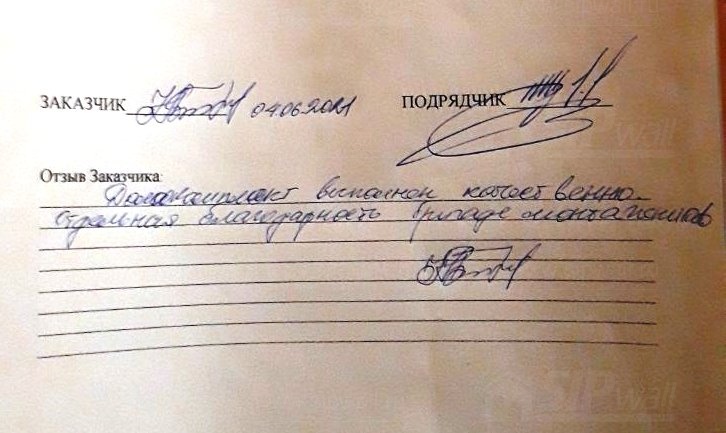 ЗАКАЗЧИК 04.06.2021 ПОДРЯДЧИК
Отзыв Заказчика:
Домокомплект выполнен качественно
отдельная благодарность бригаде монтажников
SIPwall